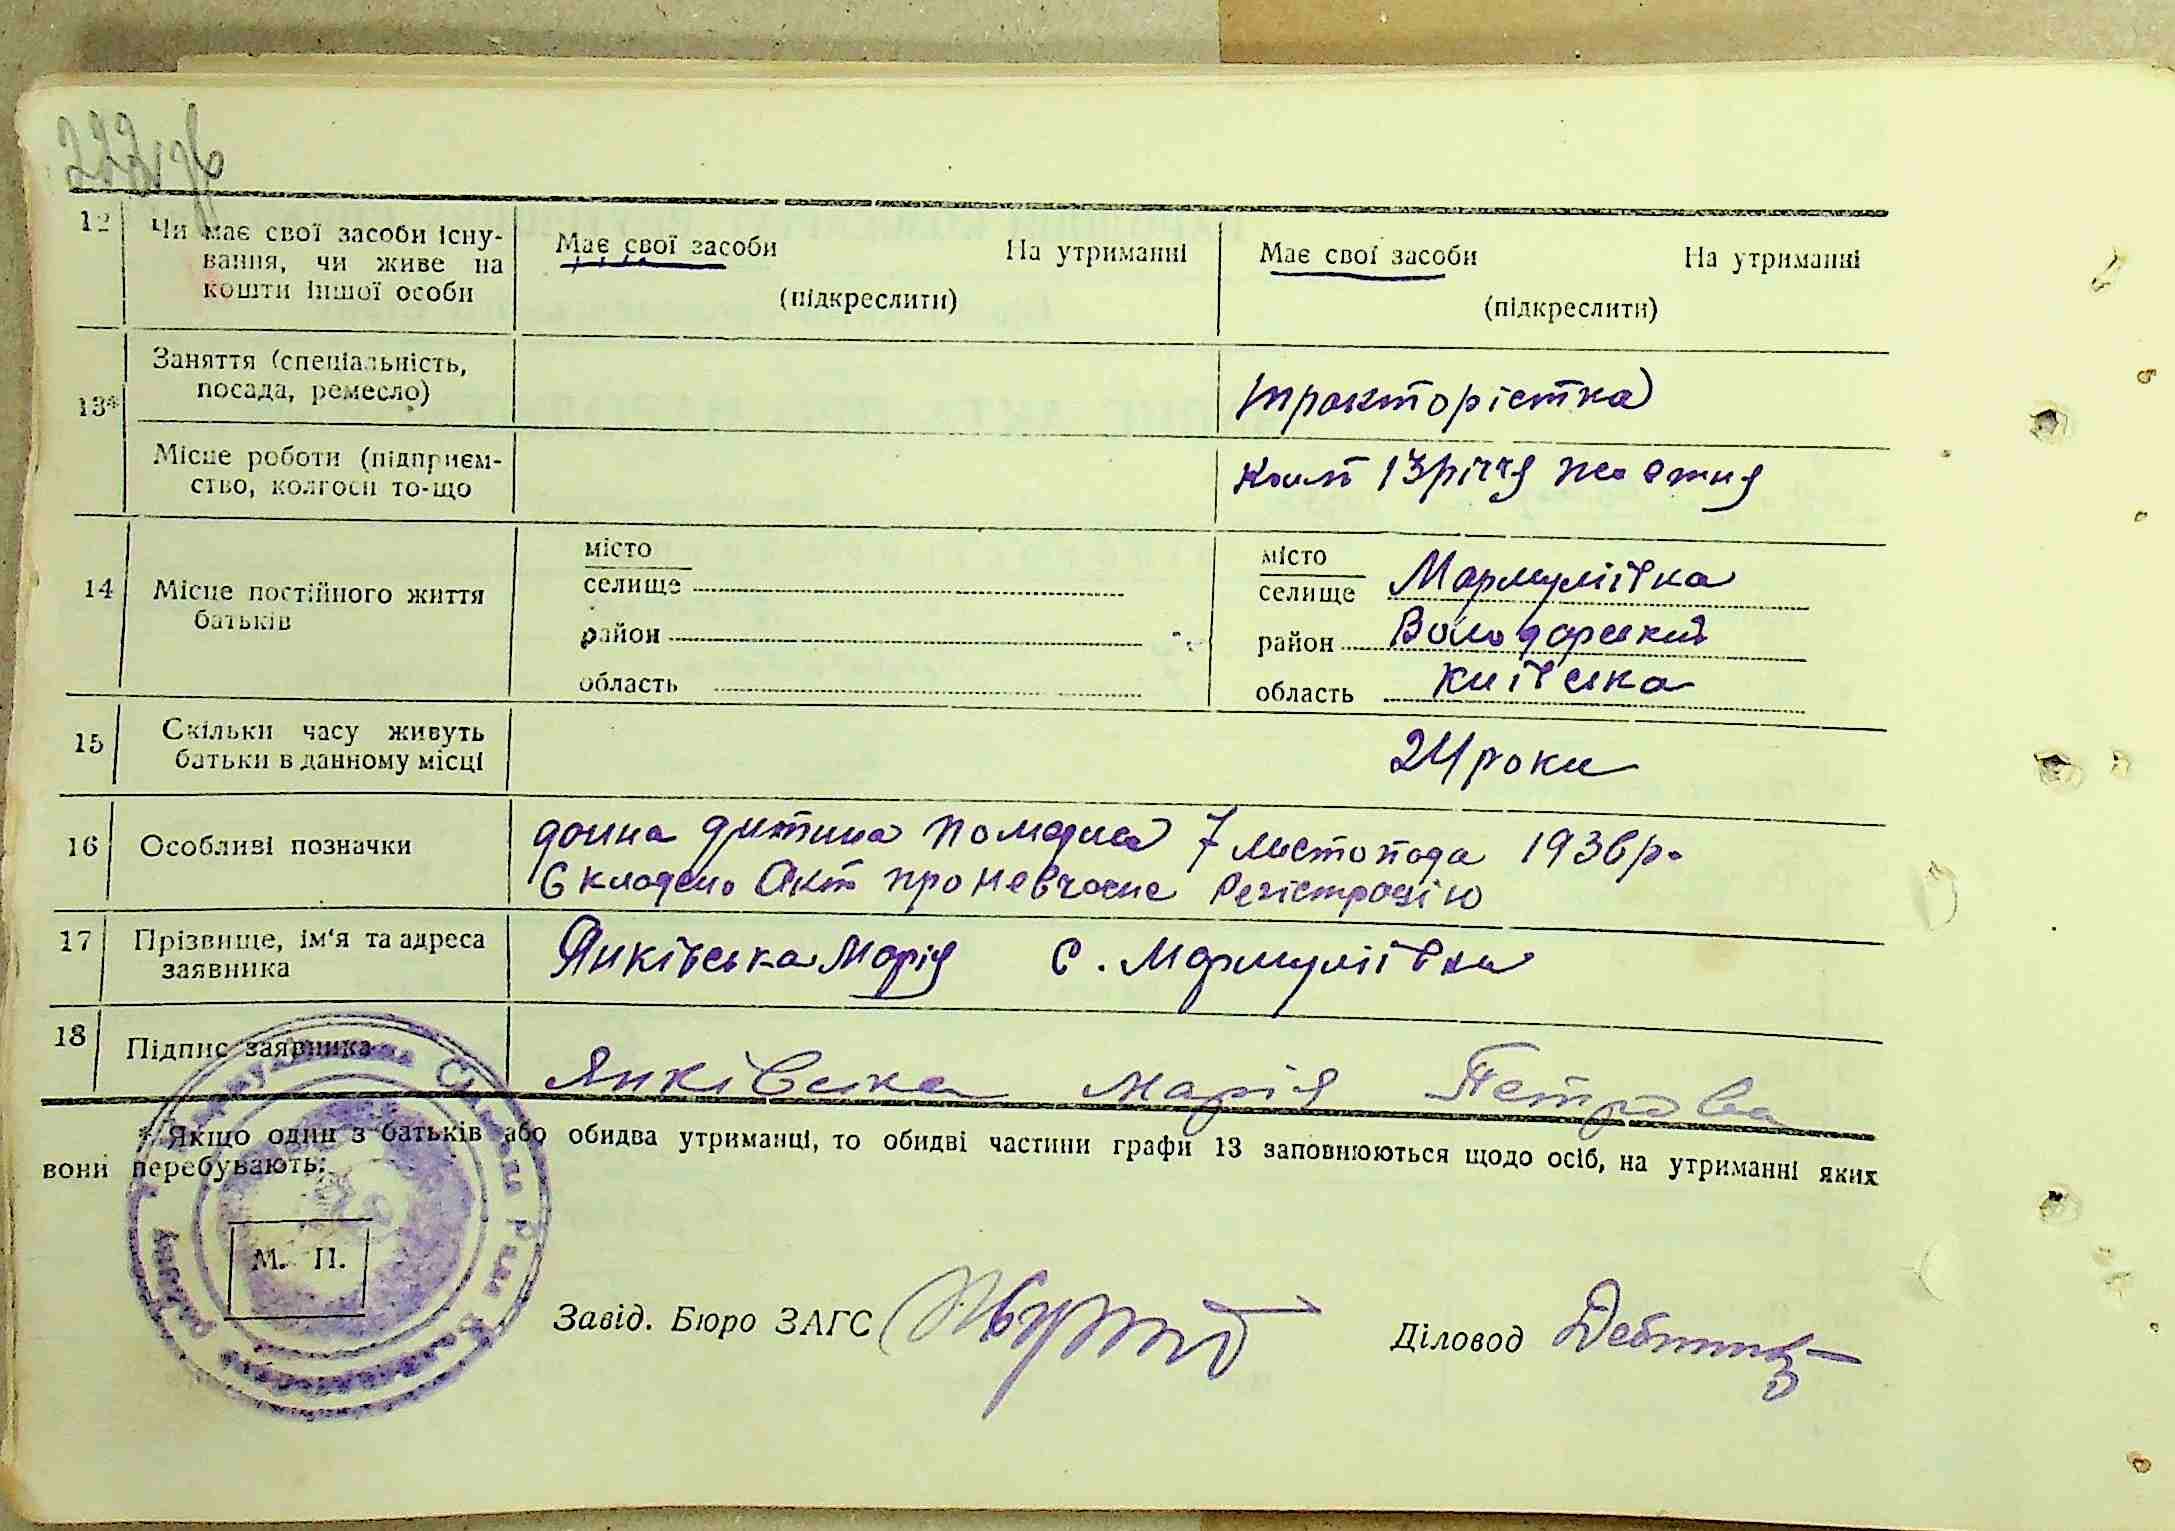 12 Чи має свої засоби існу-
вання, чи живе на
кошти іншої особи
Має свої засоби На утриманні
(підкреслити)
Має свої засоби На утриманні
(підкреслити)
13* Заняття (спеціальність,
посада, ремесло)
трактористка
Місце роботи (підприєм-
ство, колгосп то-що
колг 13річчя жовтня
14 Місце постійного життя
батьків
місто
селище
район
область
місто
селище Мармуліївка
район Володарський
область Київська
15 Скільки часу живуть
батьки в данному місці
24 роки
16 Особливі позначки
дитина 7 листопада 1936р.
Складено Акт про невчасне Регістрацію
17 Прізвище, ім'я та адреса
заявника
Янківська Марія с. Мармуліївка
18 Підпис заявника
Янківська Марія Петрова
* Якщо один з батьків або обидва утриманці, то обидві частини графи 13 заповнюються щодо осіб, на утриманні яких
вони перебувають.
М. П.
Завід. Бюро ЗАГС
Діловод